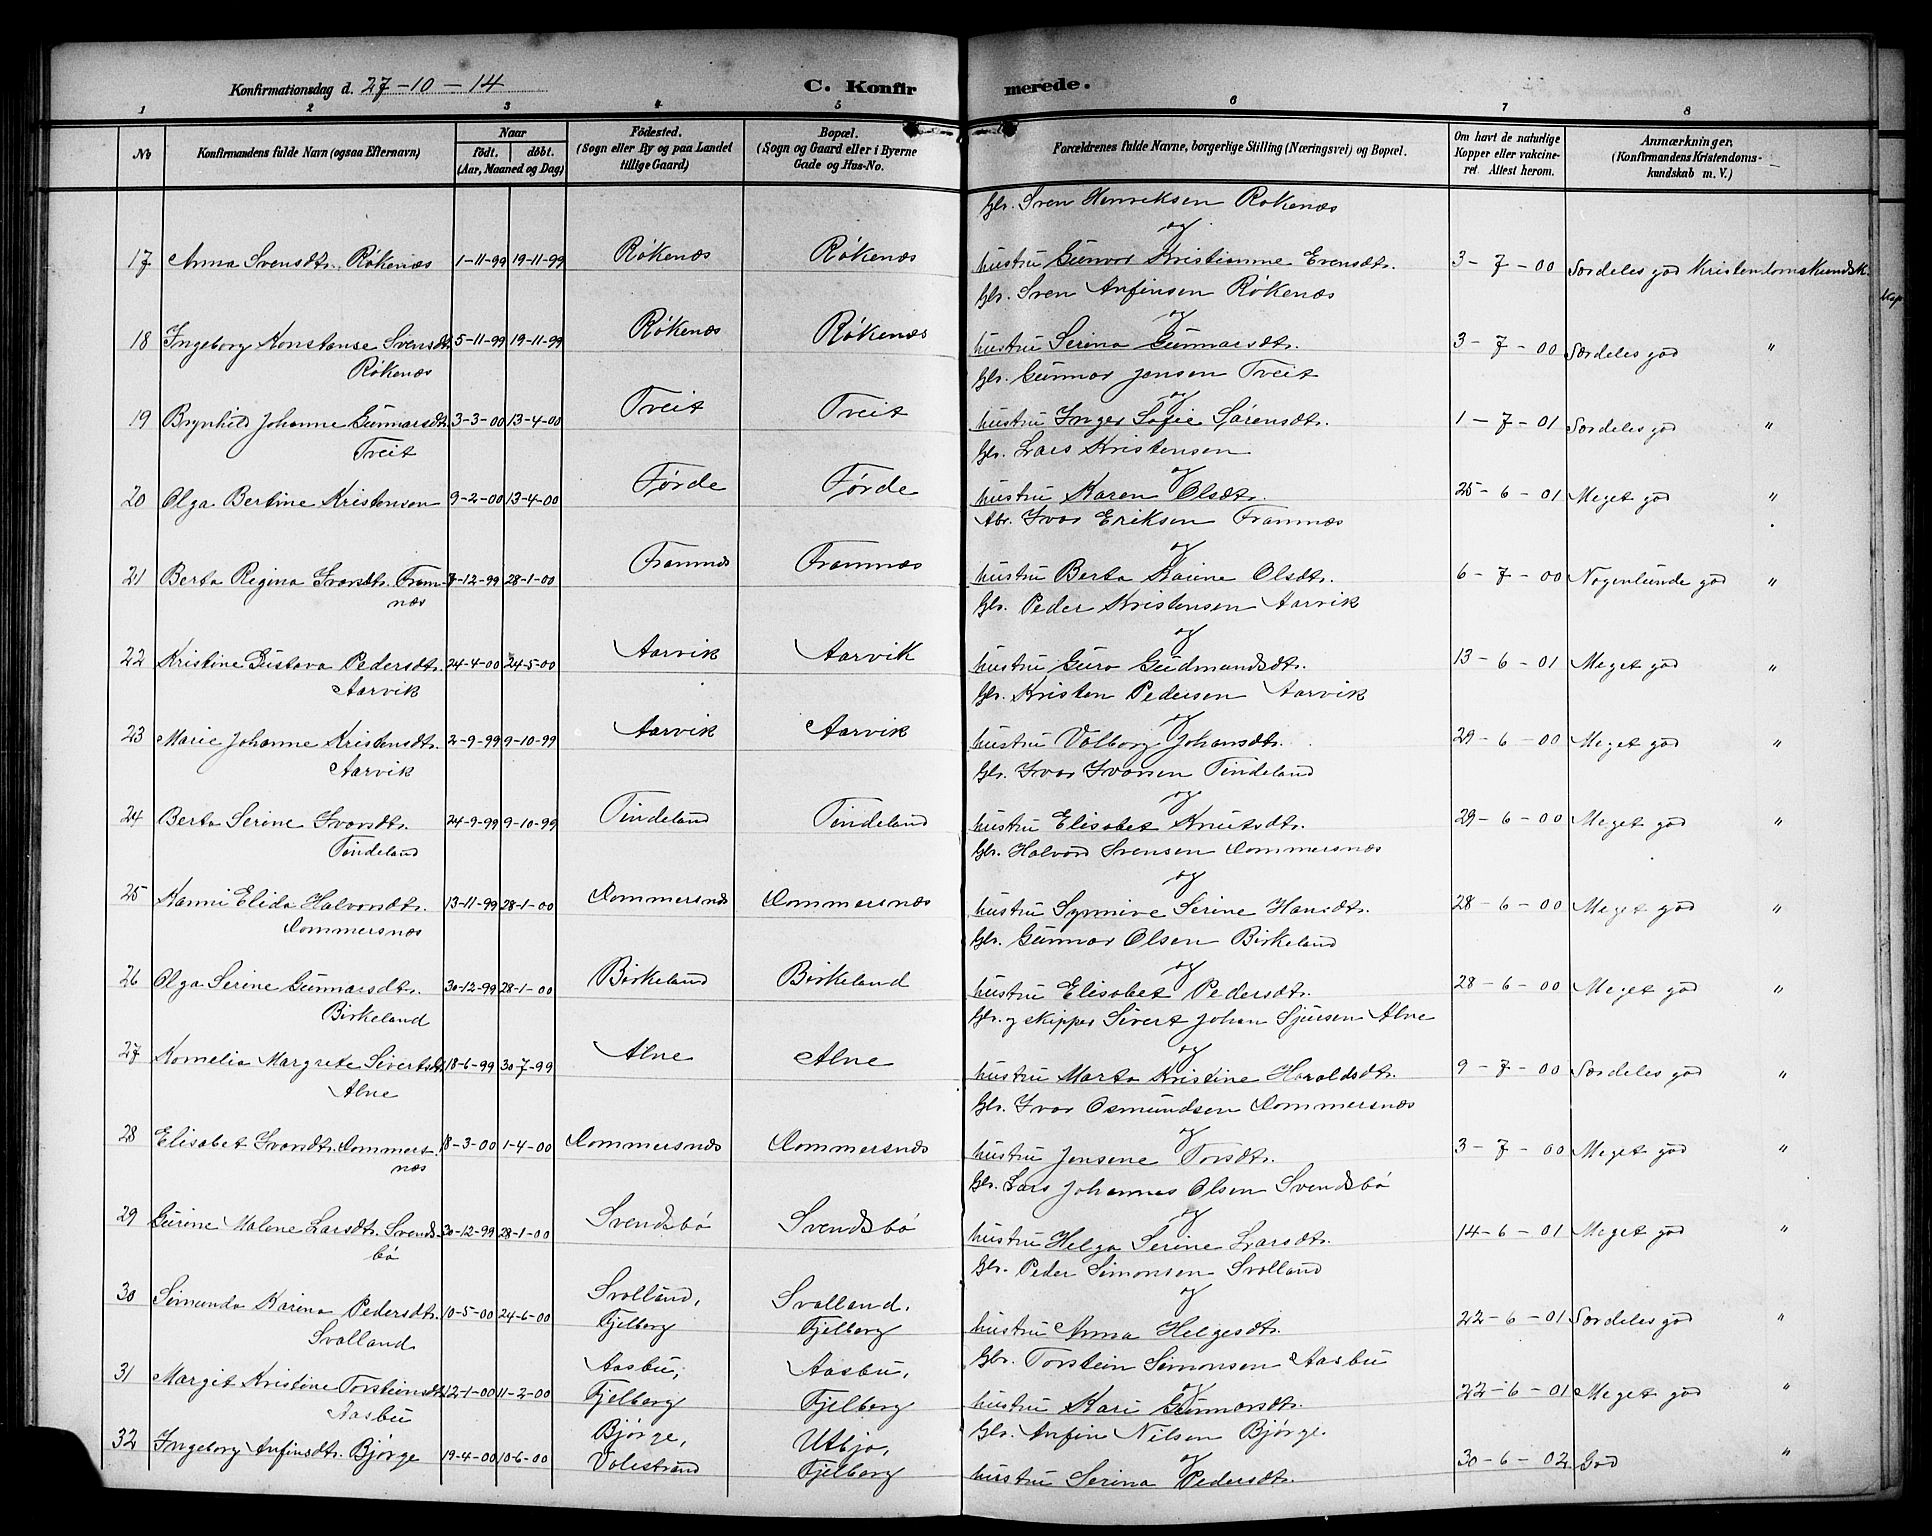 Konfirmationsdag d. 27-10-14
C. Konfirmerede.
1 2 3 4 5 6 7 8
No
Konfirmandens fulde Navn (ogsaa Efternavn)
Naar
født. døbt.
(Aar, Maaned og Dag)
Fødested.
(Sogn eller By og paa Landet
tillige Gaard)
Bopæl.
(Sogn og Gaard eller i Byerne
Gade og Hus-No.
Forældrenes fulde Navne, borgerlige Stilling (Næringsvei) og Bopæl.
Om havt de naturlige
Kopper eller vakcine-
ret Attest herom.
Anmærkninger.
(Konfirmandens Kristendoms-
kundskab m. V.)
Gbr. Sven Henriksen Røkenæs
og
17 Anna Svensdtr. Røkenæs 1-11-99 19-11-99 Røkenæs Røkenæs hustru Gunvor Kristianne Evensdtr. 3-7-00 Særdeles god Kristendomskundsk.
Gbr. Sven Anfinsen Røkenæs
og
18 Ingeborg Konstanse Svensdt. 5-11-99 19-11-99 Røkenæs Røkenæs hustru Serina Gunnarsdtr. 3-7-00 Særdeles god "
Røkenæs
Gbr. Gunnar Jensen Tveit
og
19 Brynhild Johanne Gunnarsdt. 3-3-00 13-4-00 Tveit Tveit hustru Inger Sofie Sørensdtr. 1-7-01 Særdeles god "
Tveit
Gbr. Lars Kristensen
og
20 Olga Bertine Kristensen 9-2-00 13-4-00 Førde Førde hustru Karen Olsdtr. 25-6-01 Meget god "
Abr. Ivar Eriksen Framnæs
og
21 Berta Regina Ivarsdtr. Fram- 7-12-99 28-1-00 Framnæs Framnæs hustru Berta Karine Olsdtr. 6-7-00 Nogenlunde god "
næs
Gbr. Peder Kristensen Aarvik
og
22 Kristine Gustava Pedersdtr. 24-4-00 24-5-00 Aarvik Aarvik hustru Guro Gudmundsdtr. 13-6-01 Meget god "
Aarvik
Gbr. Kristen Pedersen Aarvik
og
23 Marie Johanne Kristensdtr. 2-9-99 9-10-99 Aarvik Aarvik hustru Valborg Johansdtr. 29-6-00 Meget god "
Aarvik
Gbr. Ivar Ivarsen Tindeland
og
24 Berta Serine Ivarsdtr. 24-9-99 9-10-99 Tindeland Tindeland hustru Elisabet Knutsdtr. 29-6-00 Meget god "
Tindeland
Gbr. Halvard Svensen Dommersnæs
og
25 Kanni Elida Halvorsdtr. 13-11-99 28-1-00 Dommersnæs Dommersnæs hustru Synnive Serine Hansdtr. 28-6-00 Meget god "
Dommersnæs
Gbr. Gunnar Olsen Birkeland
og
26 Olga Serine Gunnarsdtr. 30-12-99 28-1-00 Birkeland Birkeland hustru Elisabet Pedersdtr. 28-6-00 Meget god "
Birkeland
Gbr. og skipper Sivert Johan Sjursen Alne
og
27 Kornelia Margrete Sivertsdt. 18-6-99 30-7-99 Alne Alne hustru Marta Kristine Haraldsdtr. 9-7-00 Særdeles god "
Alne
Gbr. Ivar Osmundsen Dommersnæs
og
28 Elisabet Ivarsdtr. Dommers- 18-3-00 1-4-00 Dommersnæs Dommersnæs hustru Jensene Torsdtr. 3-7-00 Meget god "
næs
Gbr. Lars Johannes Olsen Svendsbø
og
29 Gurine Malene Larsdtr. Svends- 30-12-99 28-1-00 Svendsbø Svendsbø hustru Helga Serine Larsdtr. 14-6-01 Meget god "
bø
Gbr. Peder Simonsen Svolland
og
30 Simanda Karina Pedersdtr. 10-5-00 24-6-00 Svolland, Svolland, hustru Anna Helgesdtr. 22-6-01 Særdeles god "
Svolland Fjelberg Fjelberg
Gbr. Torstein Simonsen Aasbu
og
31 Margit Kristine Torsteinsdt. 12-1-00 11-2-00 Aasbu, Aasbu, hustru Kari Gunnarsdtr. 22-6-01 Meget god "
Aasbu Fjelberg Fjelberg
Gbr. Anfin Nilsen Bjørge.
og
32 Ingeborg Anfinsdtr. Bjørge 19-4-00 10-6-00 Bjørge, Utbjo, hustru Serina Pedersdtr. 30-6-02 God "
Valestrand Fjelberg